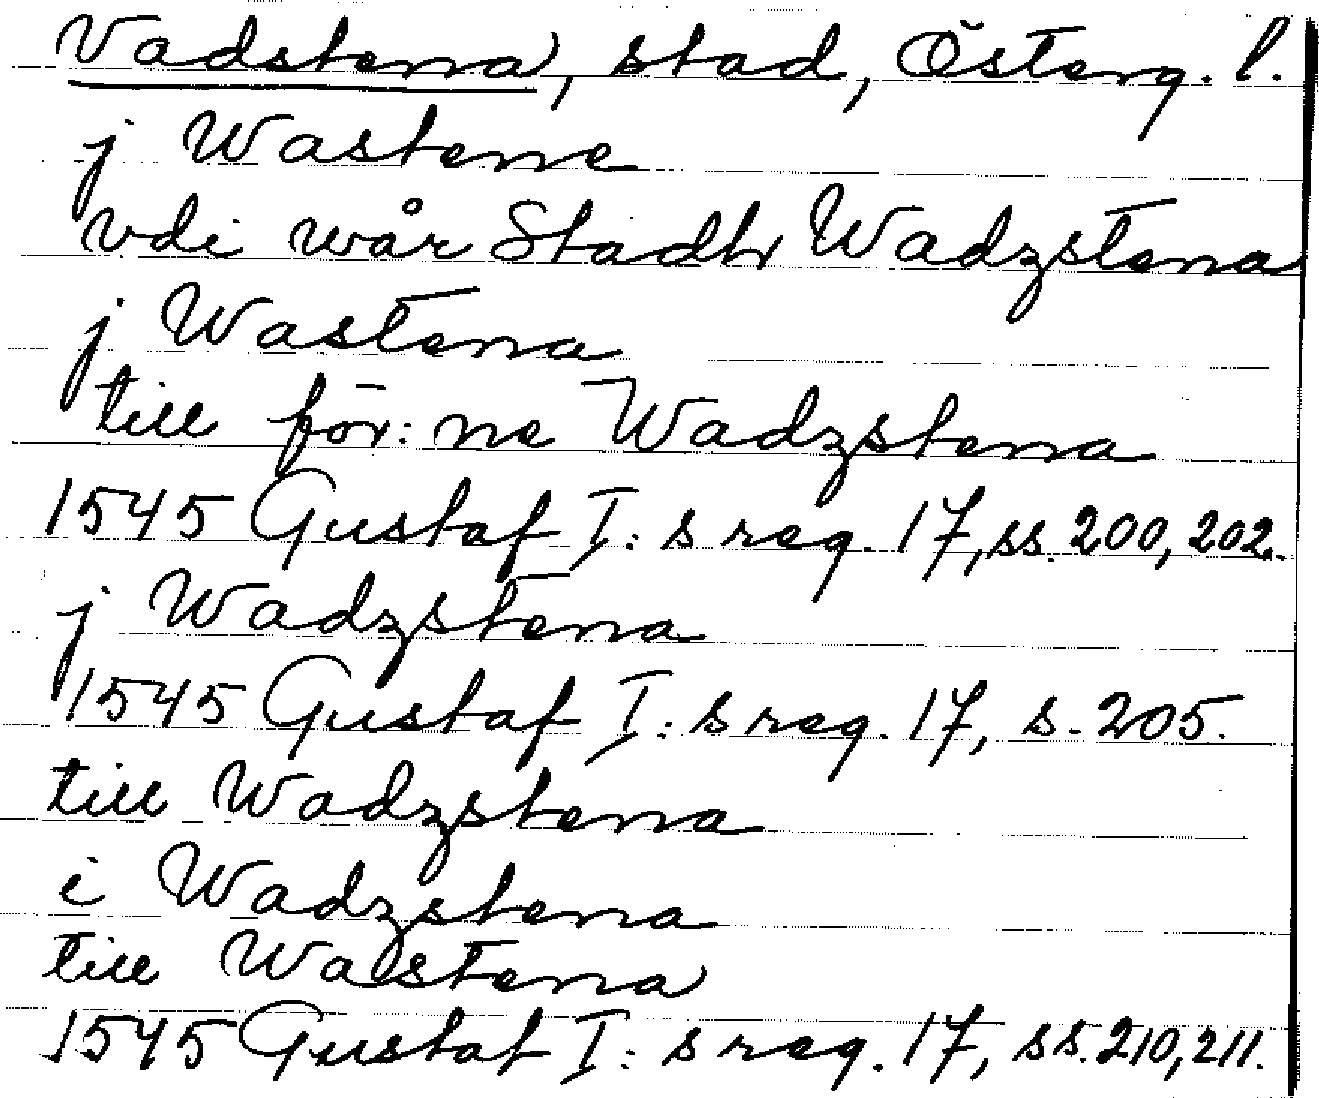 Vadstena, stad, Österg. l.
j Wastene
vdi wår Stadh Wadzstena
j Wastena
till för:ne Wadzstena
1545 Gustaf I:s reg. 17, ss. 200, 202.
j Wadzstena
1545 Gustaf I:s reg. 17, s. 205.
till Wadzstena
i Wadzstena
till Wastena
1545 Gustaf I:s reg. 17, ss. 210, 211.